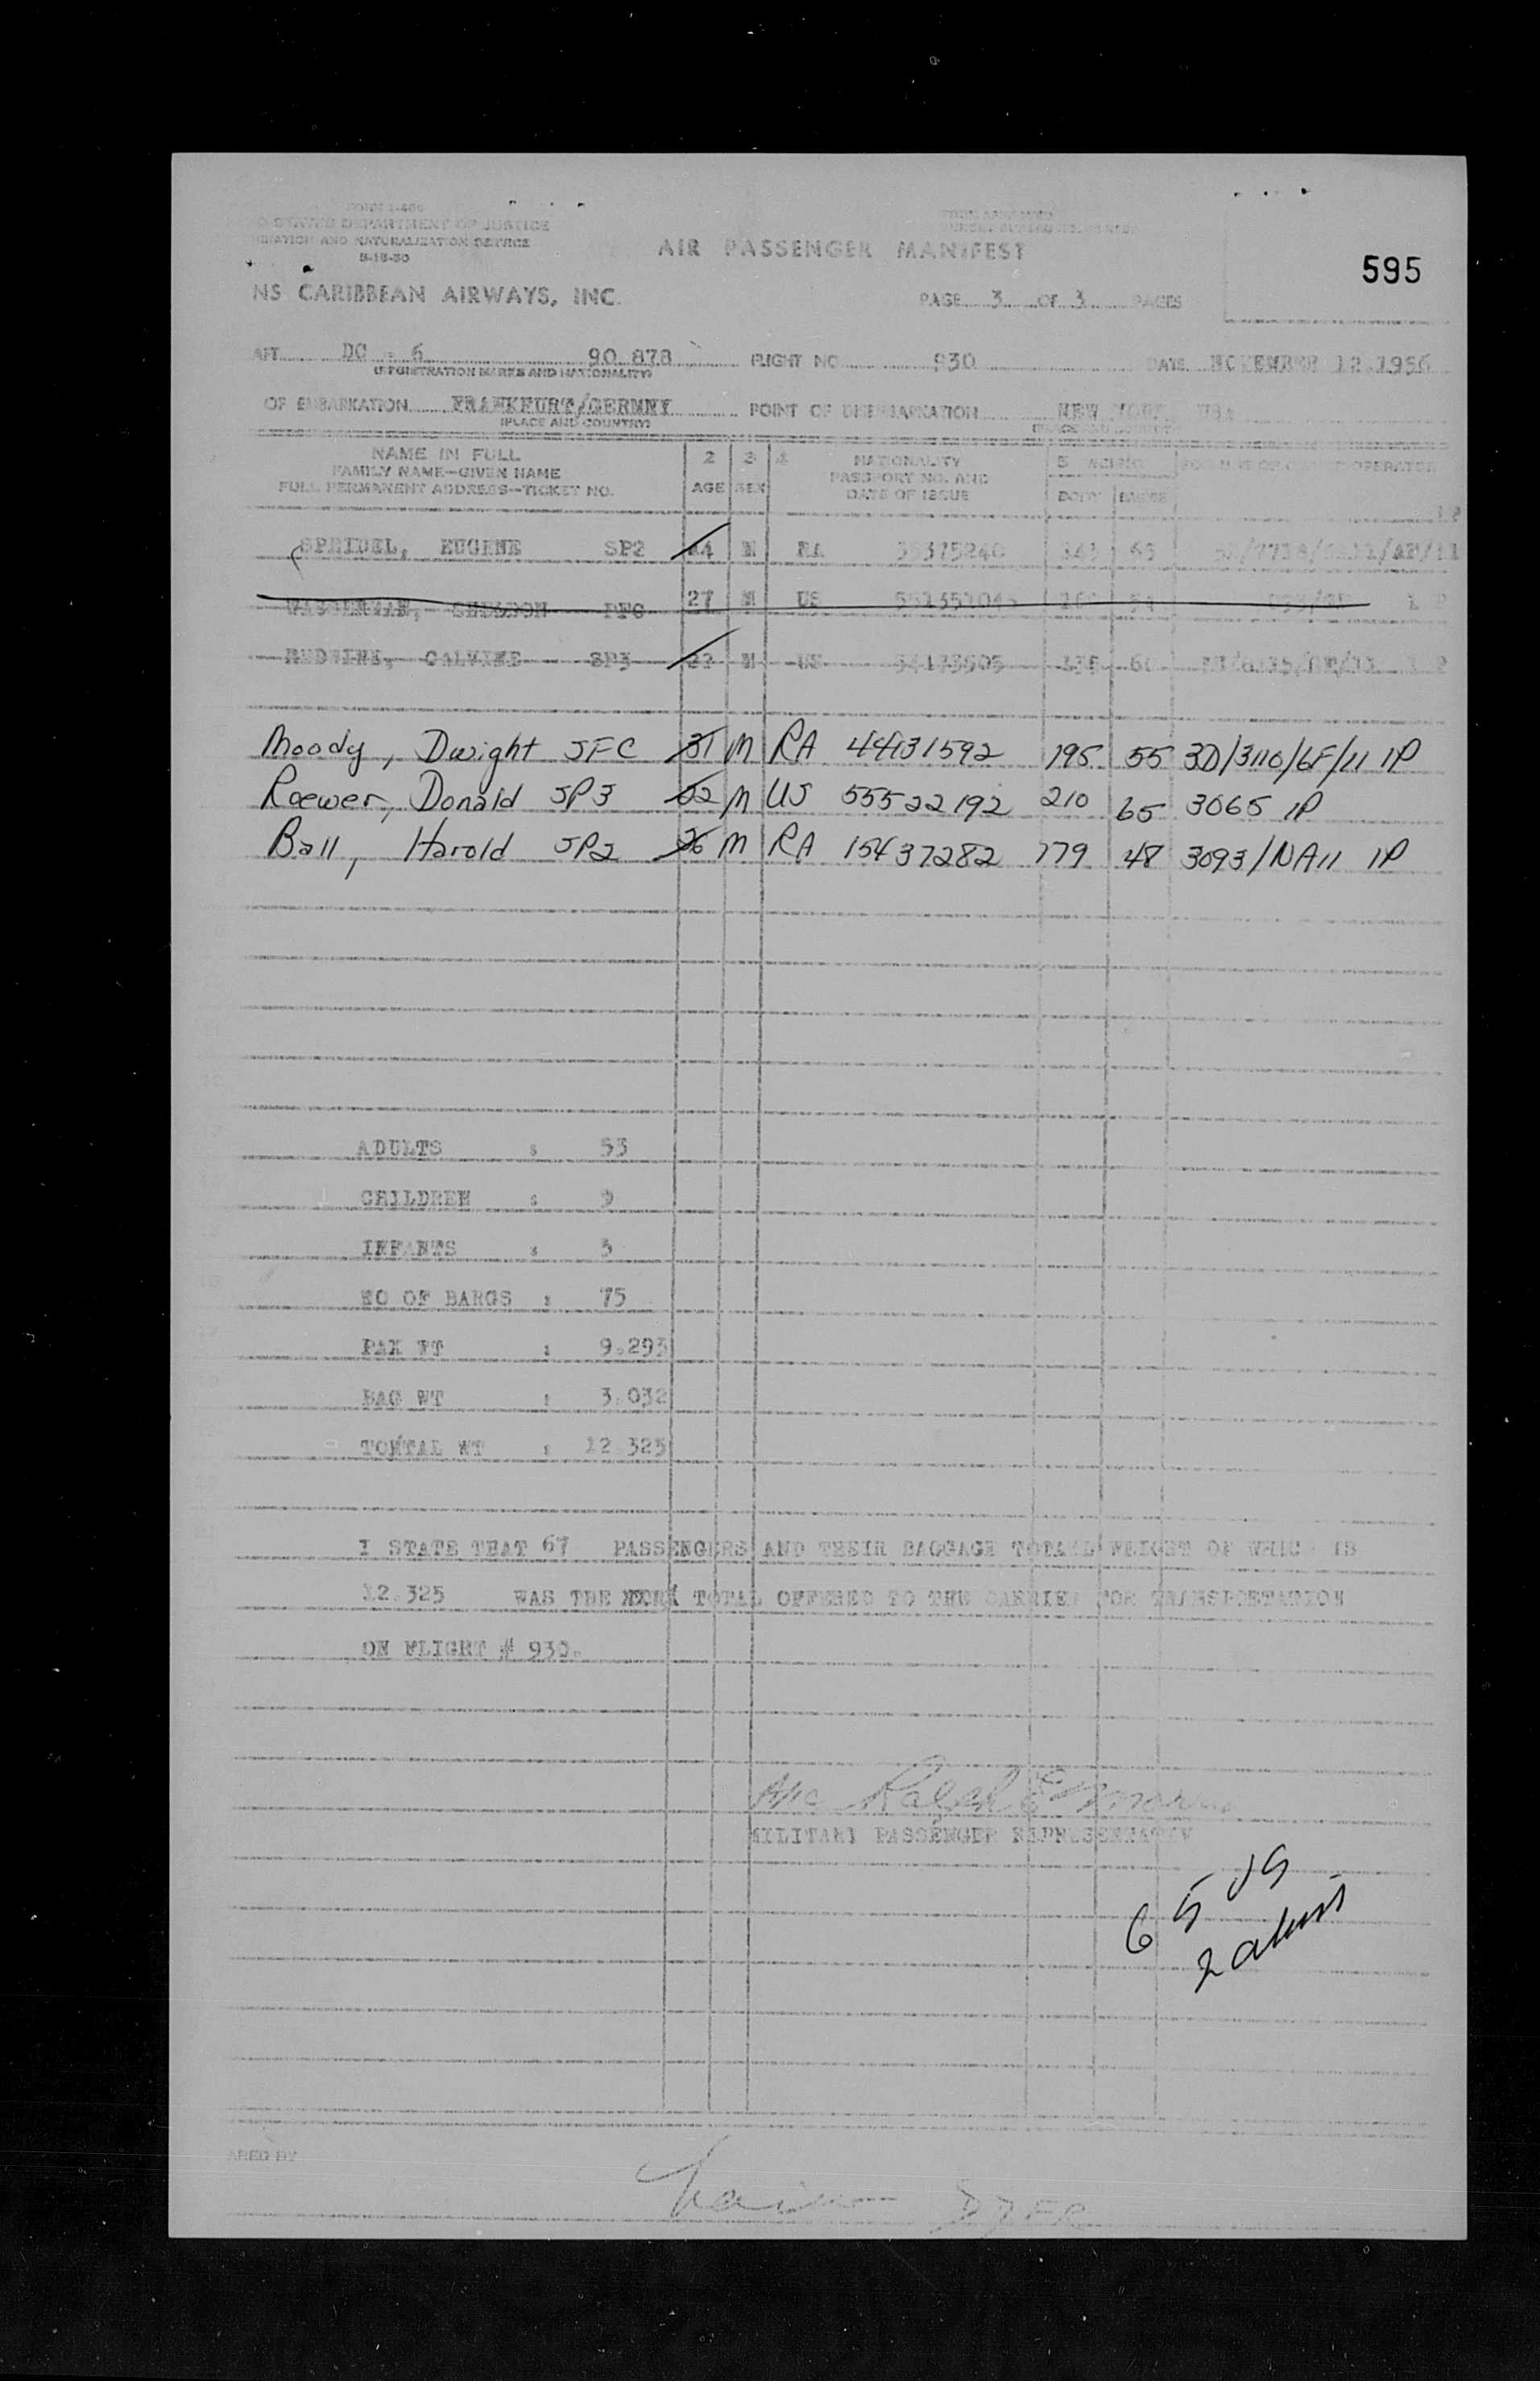 FORM I-466
STATES DEPARTMENT OF JUSTICE
AND NATURALIZATION SERVICE
5-15-50
AIR PASSENGER MANIFEST
595
NS CARIBBEAN AIRWAYS, INC.
PAGE 3 OF 3 PAGES
AFT DC - 6 90 878 FLIGHT NO 930 DATE NOVEMBER 12.1956
(REGISTRATION MARKS AND NATIONALITY)
OF EMBARKATION FRANKFURT/GERMNY POINT OF DISEMBARKATION NEW YORK USA
(PLACE AND COUNTRY)
NAME IN FULL 2 3 4 NATIONALITY 5 WEIGHT FOR USE OF OPERATOR
FAMILY NAME—GIVEN NAME PASSPORT NO. AND
FULL PERMANENT ADDRESS—TICKET NO. AGE SEX DATE OF ISSUE BODY BAGGE
SPEIDEL, EUGENE SP2 M RA 65
SHELDON PFC 27 M US
CALVINE SP3 M US
Moody, Dwight SFC 31 M RA 44131592 195 55 3D/3110/6F/11 1P
Roewer, Donald SP3 M US 55522192 210 65 3065 1P
Ball, Harold SP2 26 M RA 15437282 179 48 3093/NA11 1P
ADULTS : 53
CHILDREN : 9
INFANTS : 5
NO OF BARGS : 75
PAX WT : 9.293
BAG WT : 3.032
TOWTAL WT : 12 325
I STATE THAT 67 PASSENGERS AND THEIR BAGGAGE TOTAL WEIGHT OF WHICH IS
12.325 WAS THE TOTAL OFFERED TO THE CARRIER FOR TRANSPORTATION
ON FLIGHT # 930.
MILITARY PASSENGER REPRESENTATIV
65 US
2 aliens
ARED BY